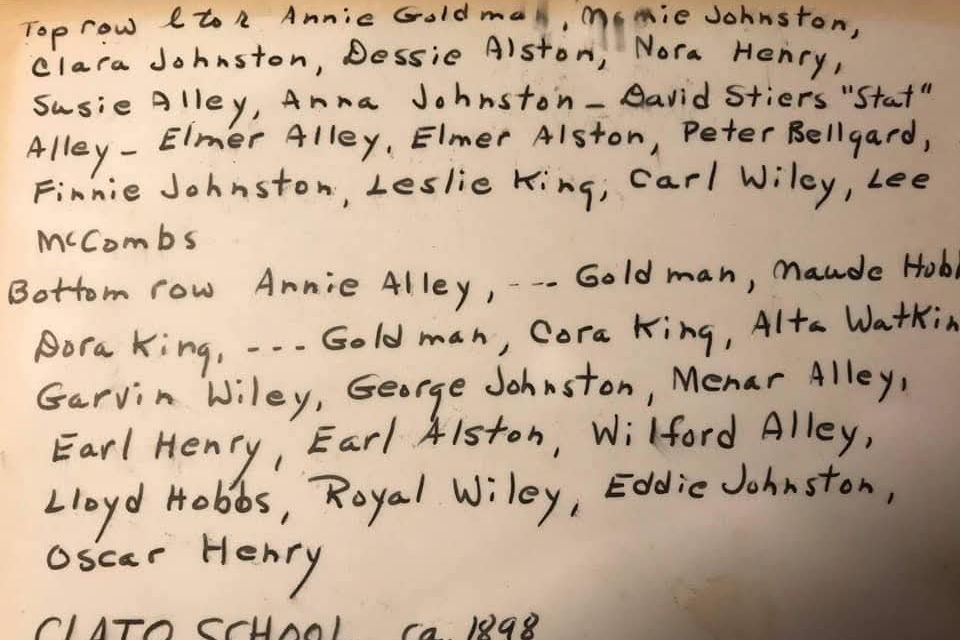 Top row l to r Annie Goldman, Johnston,
Clara Johnston, Dessie Alston, Nora Henry,
Susie Alley, Anna Johnston - David Stiers "Stat"
Alley - Elmer Alley, Elmer Alston, Peter Bellgard,
Finnie Johnston, Leslie King, Carl Wiley, Lee
McCombs
Bottom row Annie Alley, --- Goldman, Maude
Dora King, --- Goldman, Cora King, Alta Watkin
Garvin Wiley, George Johnston, Menar Alley,
Earl Henry, Earl Alston, Wilford Alley,
Lloyd Hobbs, Royal Wiley, Eddie Johnston,
Oscar Henry
CLATO SCHOOL ca. 1898